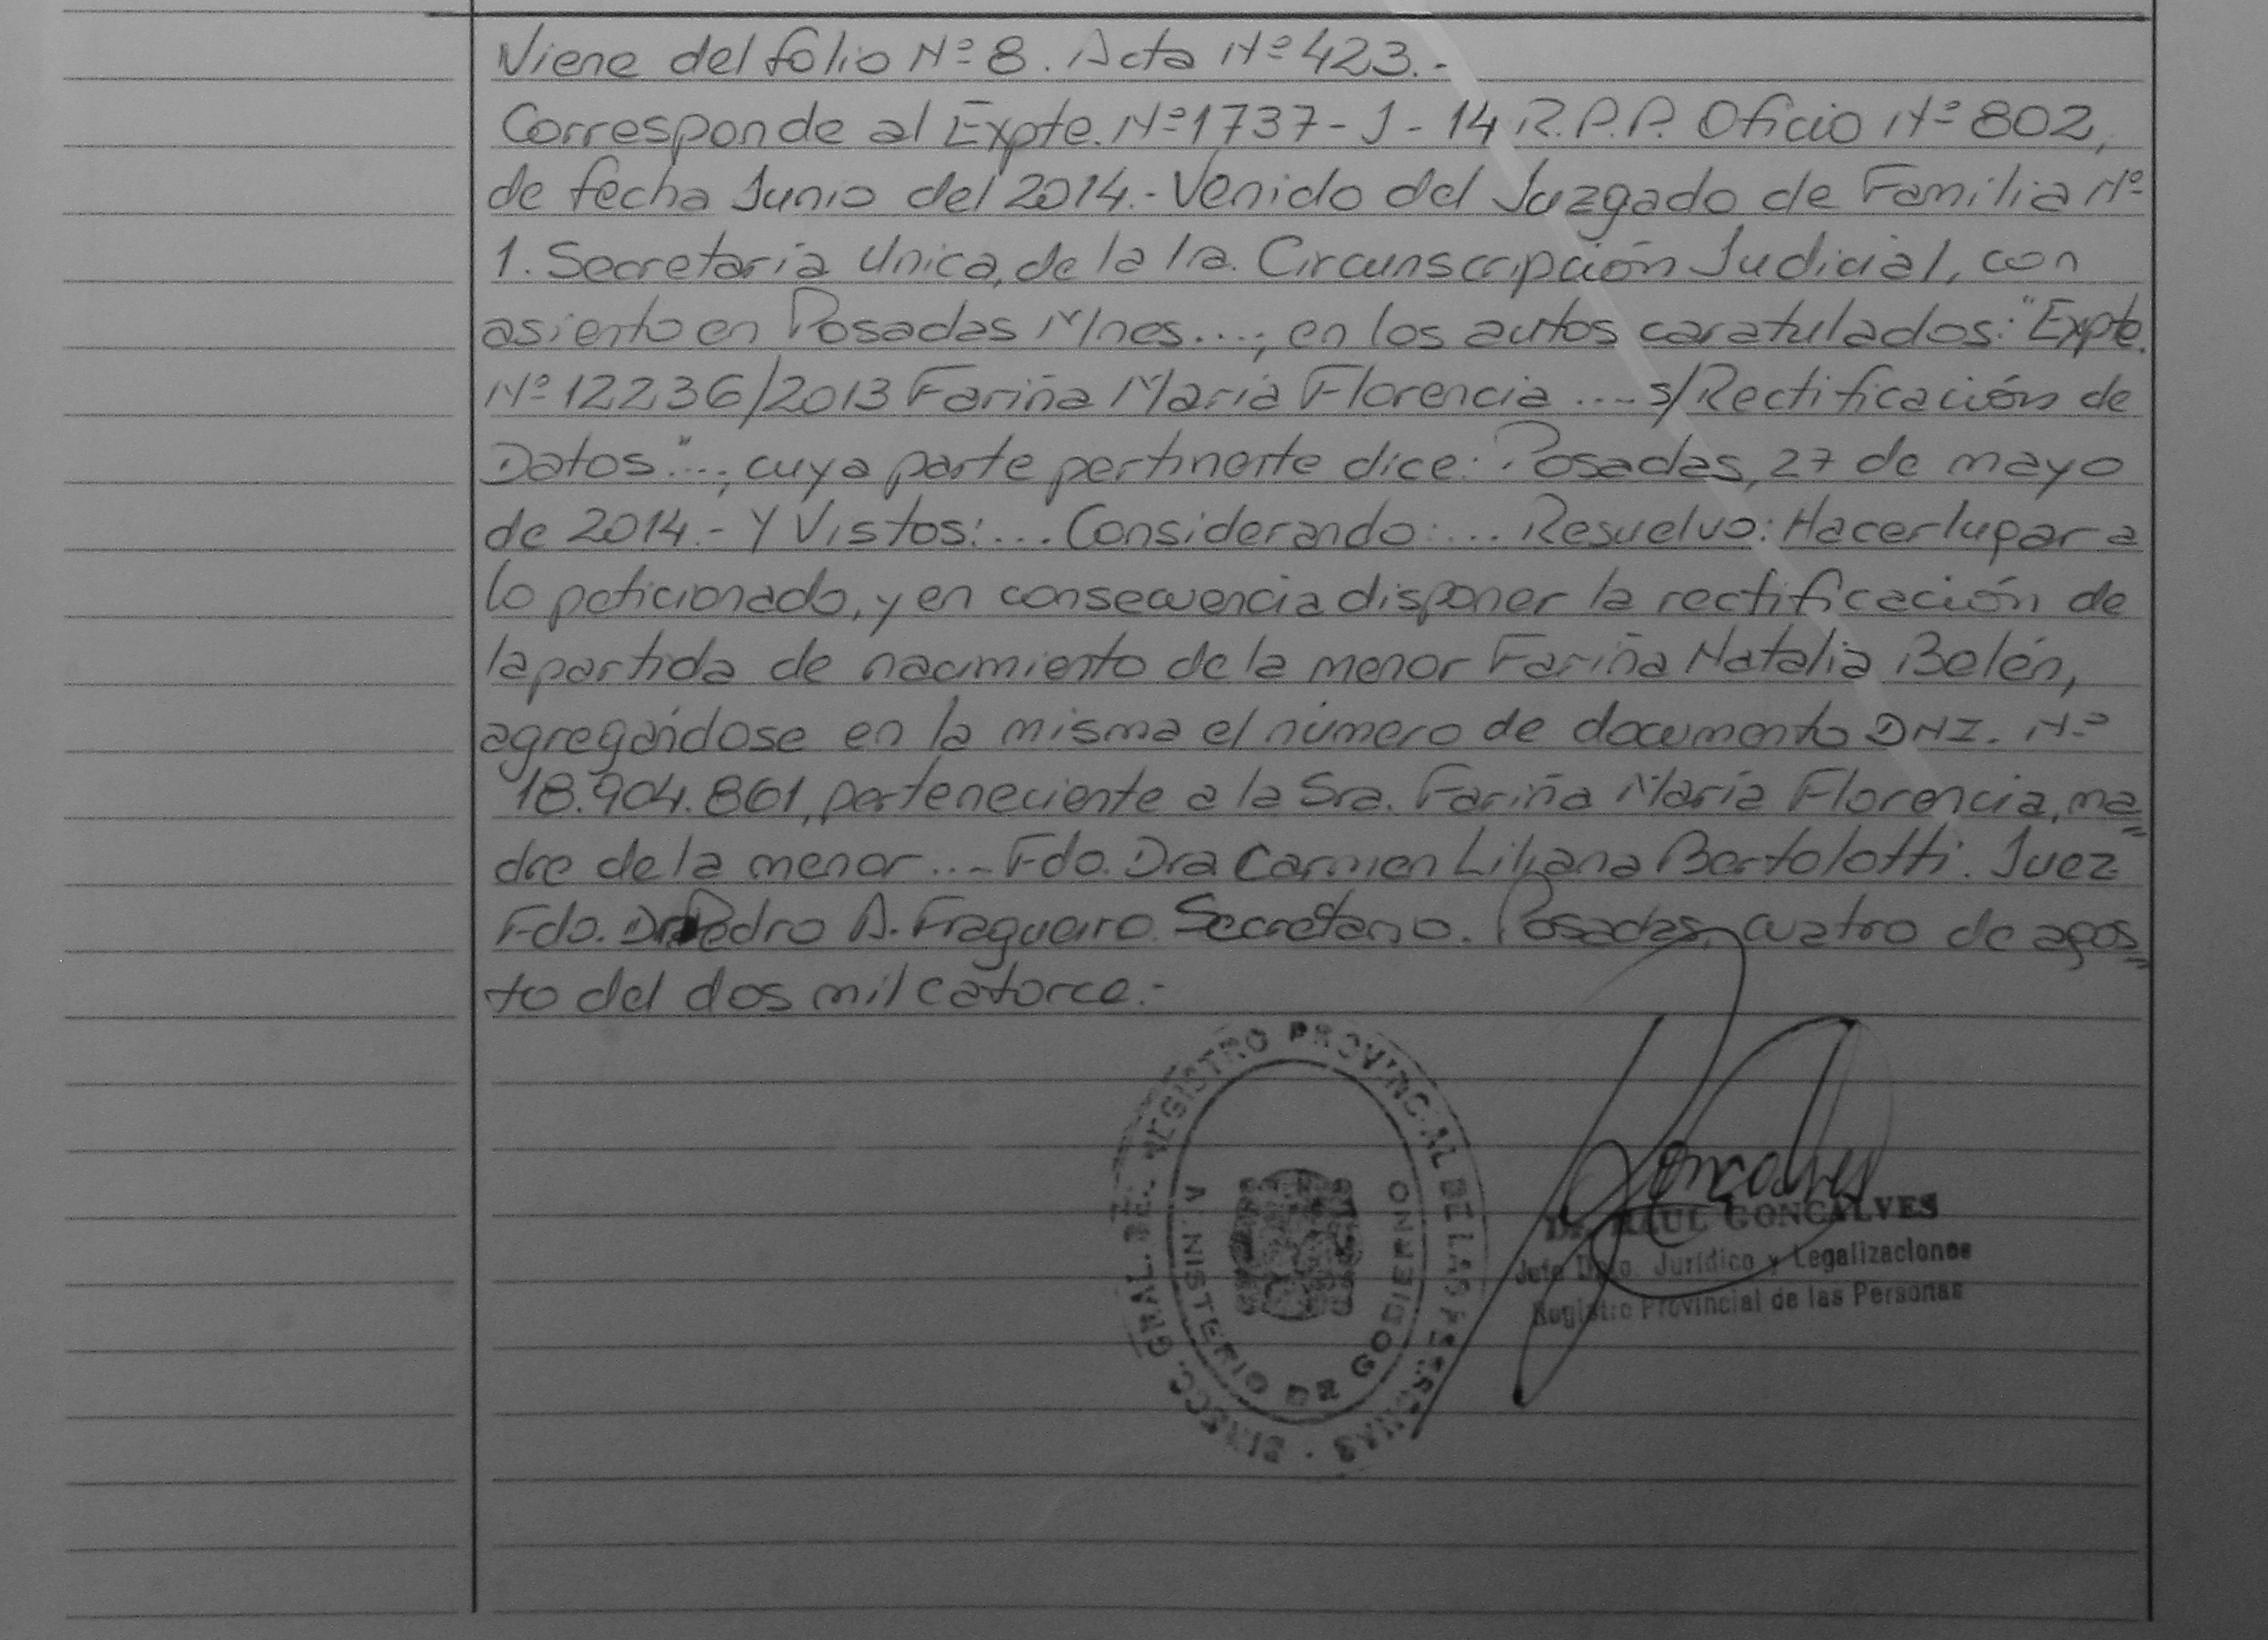 Viene del folio Nº 8. Acta Nº 423.-
Corresponde al Expte. Nº 1737 - J - 14 R.P.P. Oficio Nº 802,
de fecha Junio del 2014.- Venido del Juzgado de Familia Nº
1. Secretaría Unica, de la 1ra. Circunscripción Judicial, con
asiento en Posadas Mnes...., en los autos caratulados: "Expte.
Nº 12236/2013 Fariña María Florencia .... s/Rectificación de
Datos"..., cuya parte pertinente dice: Posadas, 27 de mayo
de 2014.- Y Vistos:... Considerando:... Resuelvo: Hacer lugar a
lo peticionado, y en consecuencia disponer la rectificación de
la partida de nacimiento de la menor Fariña Natalia Belén,
agregándose en la misma el número de documento DNI. Nº
18.904.861, perteneciente a la Sra. Fariña María Florencia, ma=
dre de la menor .... Fdo. Dra Carmen Liliana Bertolotti. Juez
Fdo. Dr Pedro A. Fragueiro Secretario. Posadas, cuatro de agos=
to del dos mil catorce.-
GRAL. DEL REGISTRO PROVINCIAL DE LAS PERSONAS
MINISTERIO DE GOBIERNO
Goncalves
Dr. RAUL GONCALVES
Jefe Dpto. Jurídico y Legalizaciones
Registro Provincial de las Personas